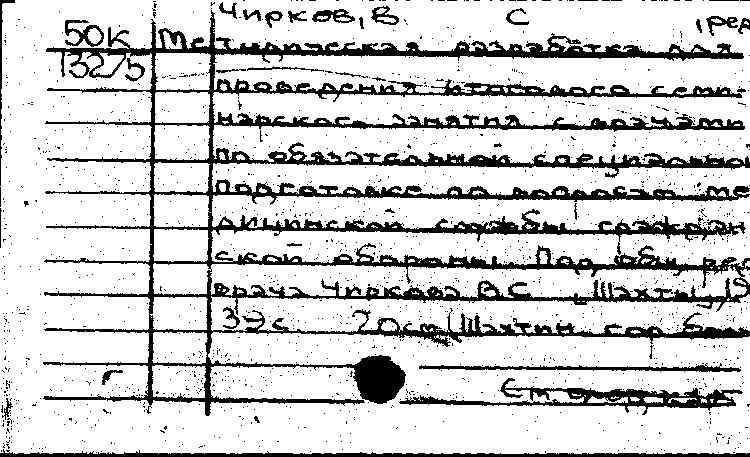 Чирков, В. С (ред
50к Методическая разработка для
132/5
проведения итогового семи-
нарского занятия с врачами
по обязательной специальной
подготовке по вопросам ме
дицинской службы граждан
ской обороны. Под общ. ред
врача Чиркова В.С Шахты, 19
39 с 20 см (Шахтин. гор.